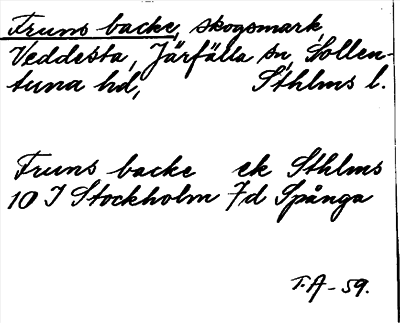 Fruns backe, skogsmark,
Veddesta, Järfälla sn, Sollen-
tuna hd, Sthlms l.
Fruns backe ek Sthlms
10 I Stockholm 7d Spånga
T.A-59.